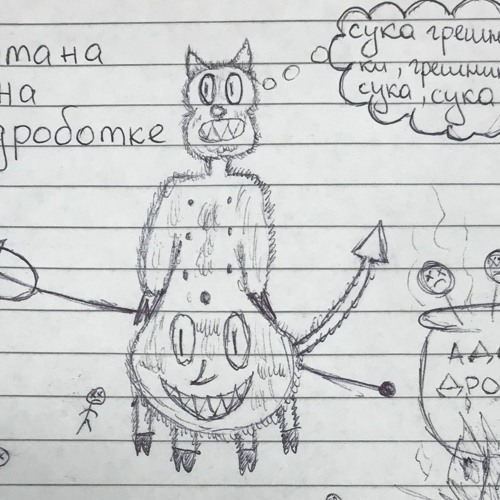 тана
на
дроботке
сука грешн
ки, грешни
сука, сука
АД
ДРО